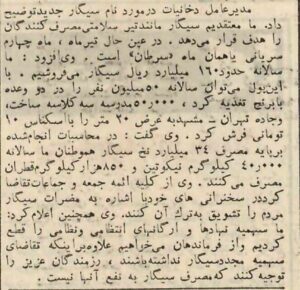 مدیرعامل دخانیات درمورد نام سیگار جدیدتوضیح
داد. ما معتقدیم سیگار مانندتیر سلامتی‌مصرف‌کنندگان
را هدف قرار می‌دهد. در عین حال تیرماه، ماه چهارم
سریانی یاهمان ماه «سرطان» است. وی‌افزود: ما
سالانه حدود ۱۶۰ میلیارد ریال سیگار می‌فروشیم. با
این‌پول می‌توان سالانه ۵۰میلیون نفر را در دو وعده
بابرنج تغذیه کرد، ۵۰٫۰۰۰مدرسه سه کلاسه ساخت،
وجاده تهران - مشهدبه عرض ۲۰ متر را بااسکناس ۱۰
تومانی فرش کرد. وی گفت: در محاسبات انجام‌شده
برپایه مصرف ۳۴ میلیارد نخ سیگار هموطنان ما سالانه
۴۰٫۰۰۰ کیلوگرم نیکوتین و ۸۵۰هزارکیلوگرم‌قطران
مصرف می‌کنند. وی از کلیه ائمه جمعه و جماعات‌تقاضا
کرددر سخنرانی های خودبا اشاره به مضرات سیگار
مردم را تشویق به‌ترک آن کنند. وی همچنین اعلام‌کرد:
ما سهمیه نهادها و ارگانهای انتظامی ونظامی را قطع
کردیم واز فرماندهان می‌خواهیم علاوه‌براینکه تقاضای
سهمیه مجددسیگار نداشته‌باشند، رزمندگان عزیز را
توجیه کنند که‌مصرف سیگار به نفع آنها نیست.